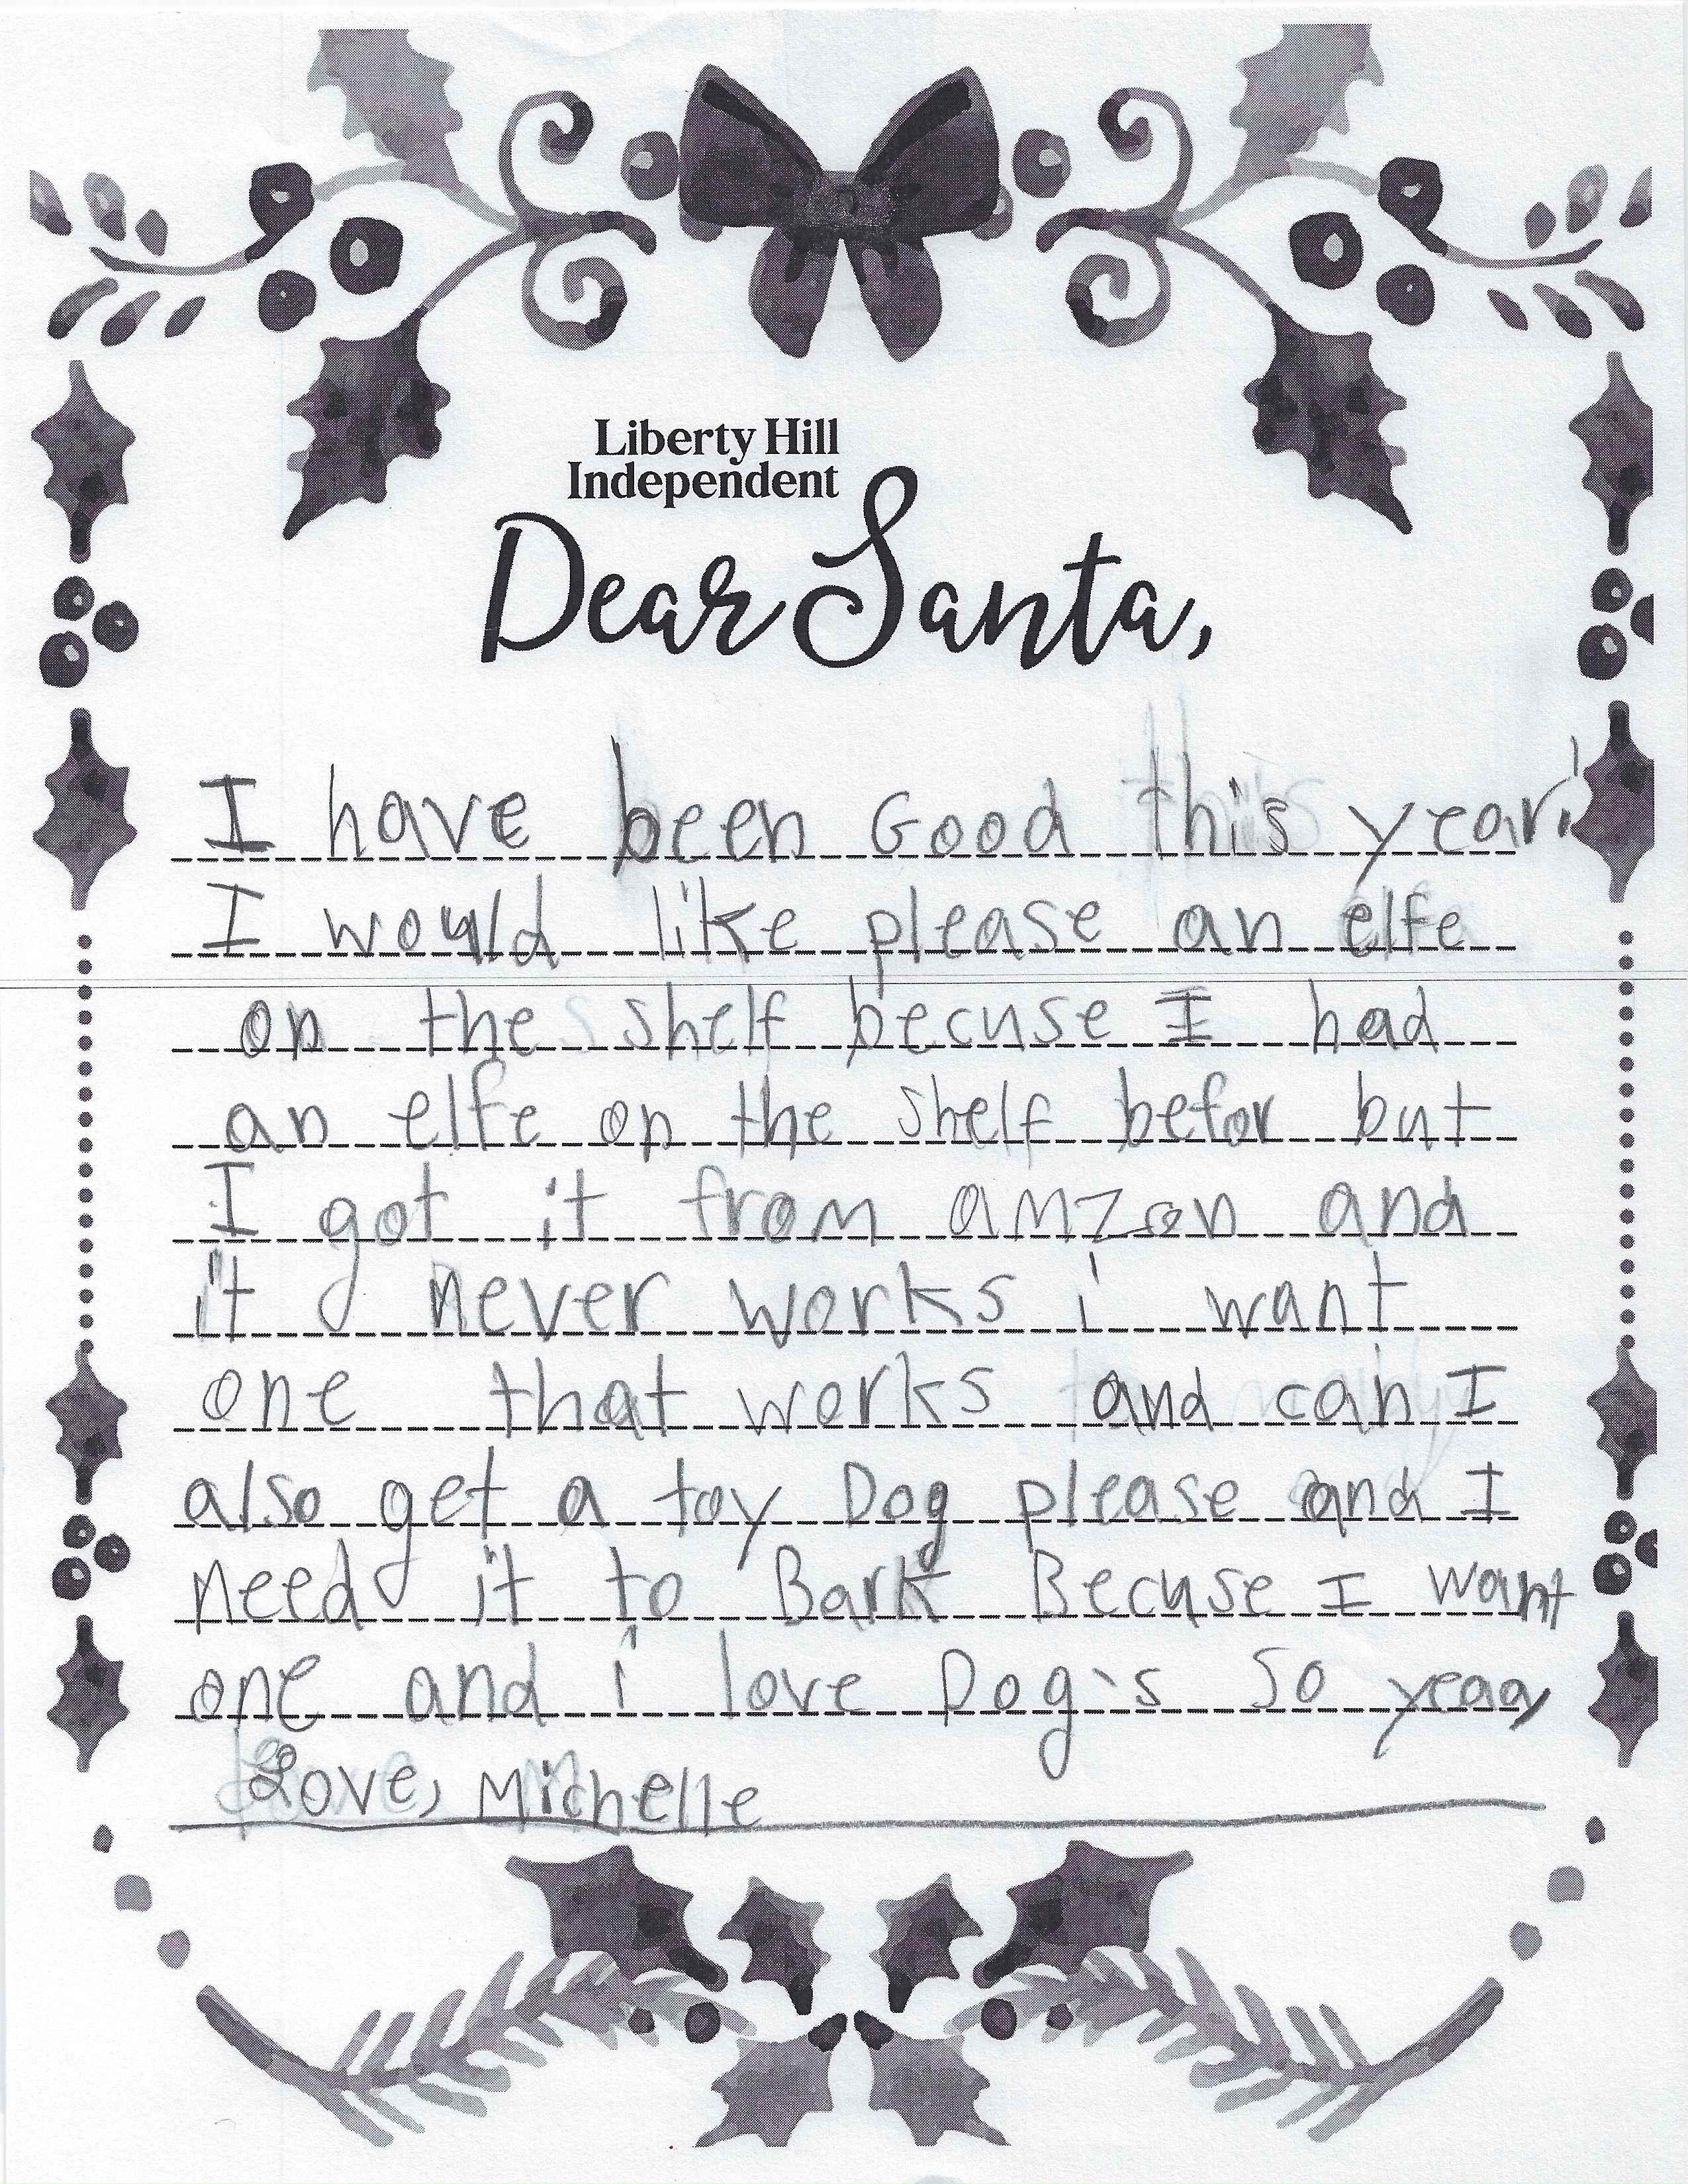 Liberty Hill
Independent
Dear Santa,
I have been Good this year!
I would like please an elfe
on the shelf becuse I had
an elfe on the shelf befor but
I got it from amzon and
it never works i want
one that works and can I
also get a toy Dog please and I
need it to Bark Becuse I want
one and i love Dog's so yeaa
Love, Michelle